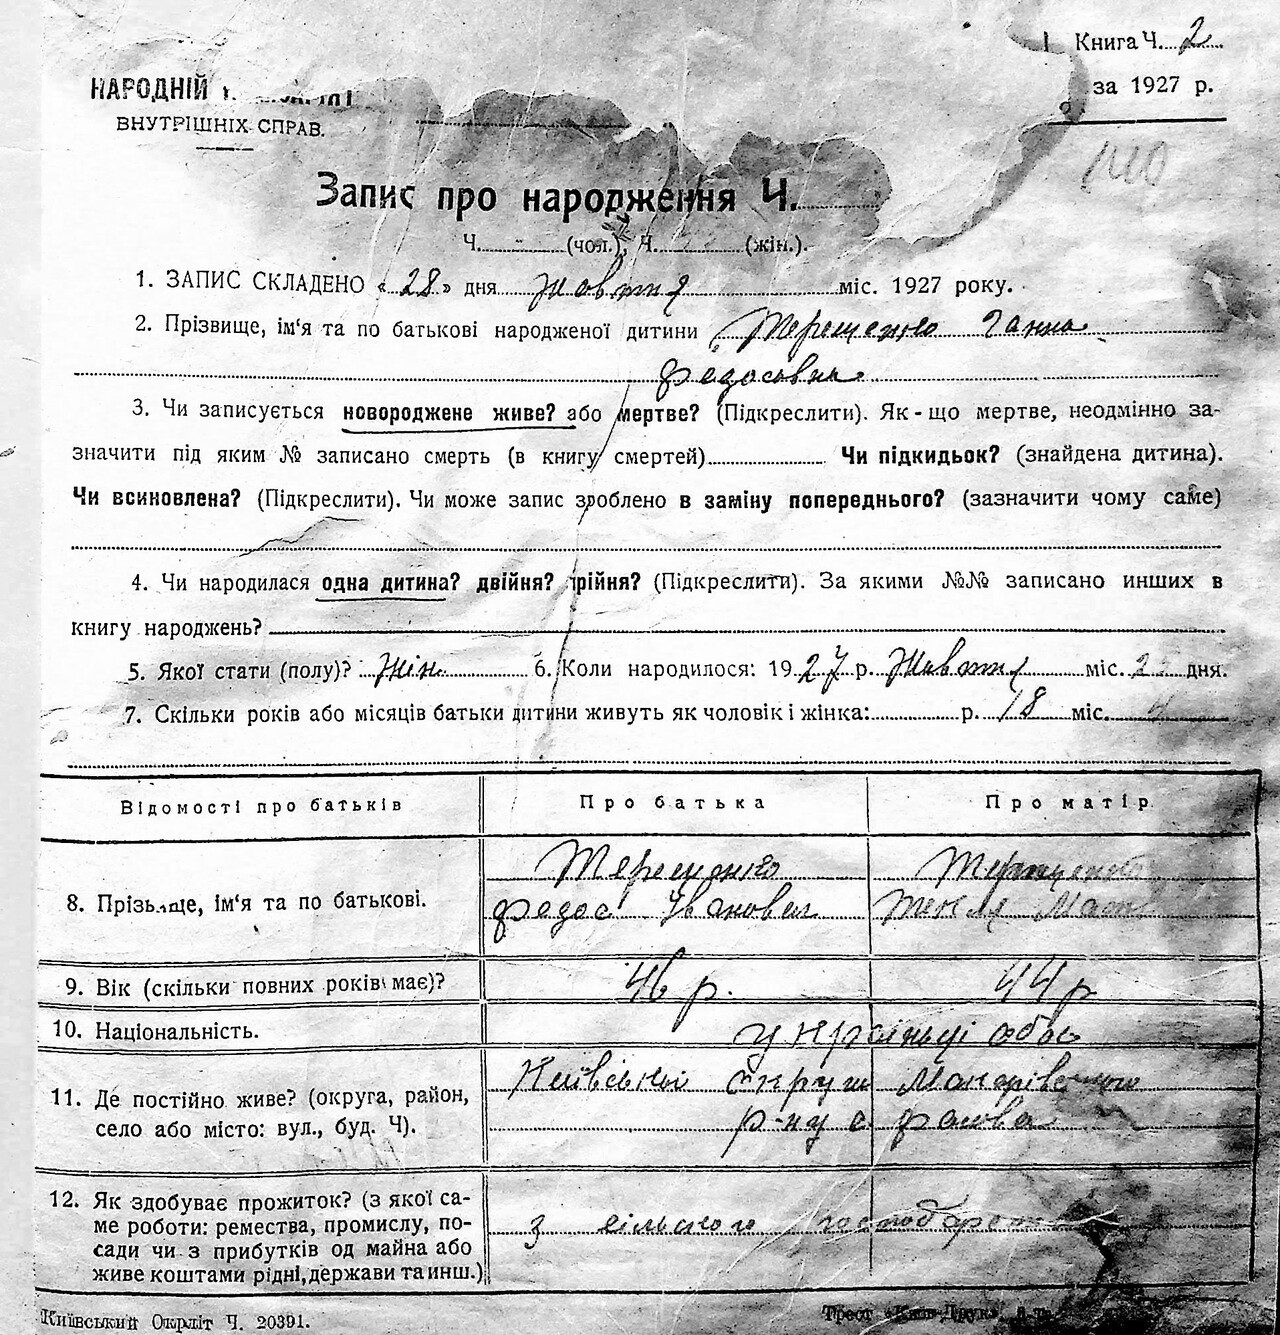 Книга Ч. 2
НАРОДНІЙ
за 1927 р.
ВНУТРІШНІХ СПРАВ.
Запис про народження Ч.
Ч. (чол.), Ч. (жін.).
1. ЗАПИС СКЛАДЕНО «28» дня жовтня міс. 1927 року.
2. Прізвище, ім'я та по батькові народженої дитини Терещенко Ганна
Федосьвна
3. Чи записується новороджене живе? або мертве? (Підкреслити). Як-що мертве, неодмінно за-
значити під яким № записано смерть (в книгу смертей) Чи підкидьок? (знайдена дитина).
Чи всиновлена? (Підкреслити). Чи може запис зроблено в заміну попереднього? (зазначити чому саме)
4. Чи народилася одна дитина? двійня? трійня? (Підкреслити). За якими №№ записано инших в
книгу народжень?
5. Якої стати (полу)? жін 6. Коли народилося: 1927 р. жовтня міс. дня.
7. Скільки років або місяців батьки дитини живуть як чоловік і жінка: р. 18 міс.
Відомості про батьків Про батька Про матір
Терещенко Терещенко
8. Прізвище, ім'я та по батькові.
Федос Іванович
9. Вік (скільки повних років має)? 46 р. 44 р
10. Національність. українці обоє
Київської округи Макарівського
11. Де постійно живе? (округа, район,
село або місто: вул., буд. Ч). р-ну с
12. Як здобуває прожиток? (з якої са-
ме роботи: ремества, промислу, по- з сільского господарства
сади чи з прибутків од майна або
живе коштами рідні, держави та инш.)
Київський Окрліт Ч. 20391. Трест «Київ-Друк»